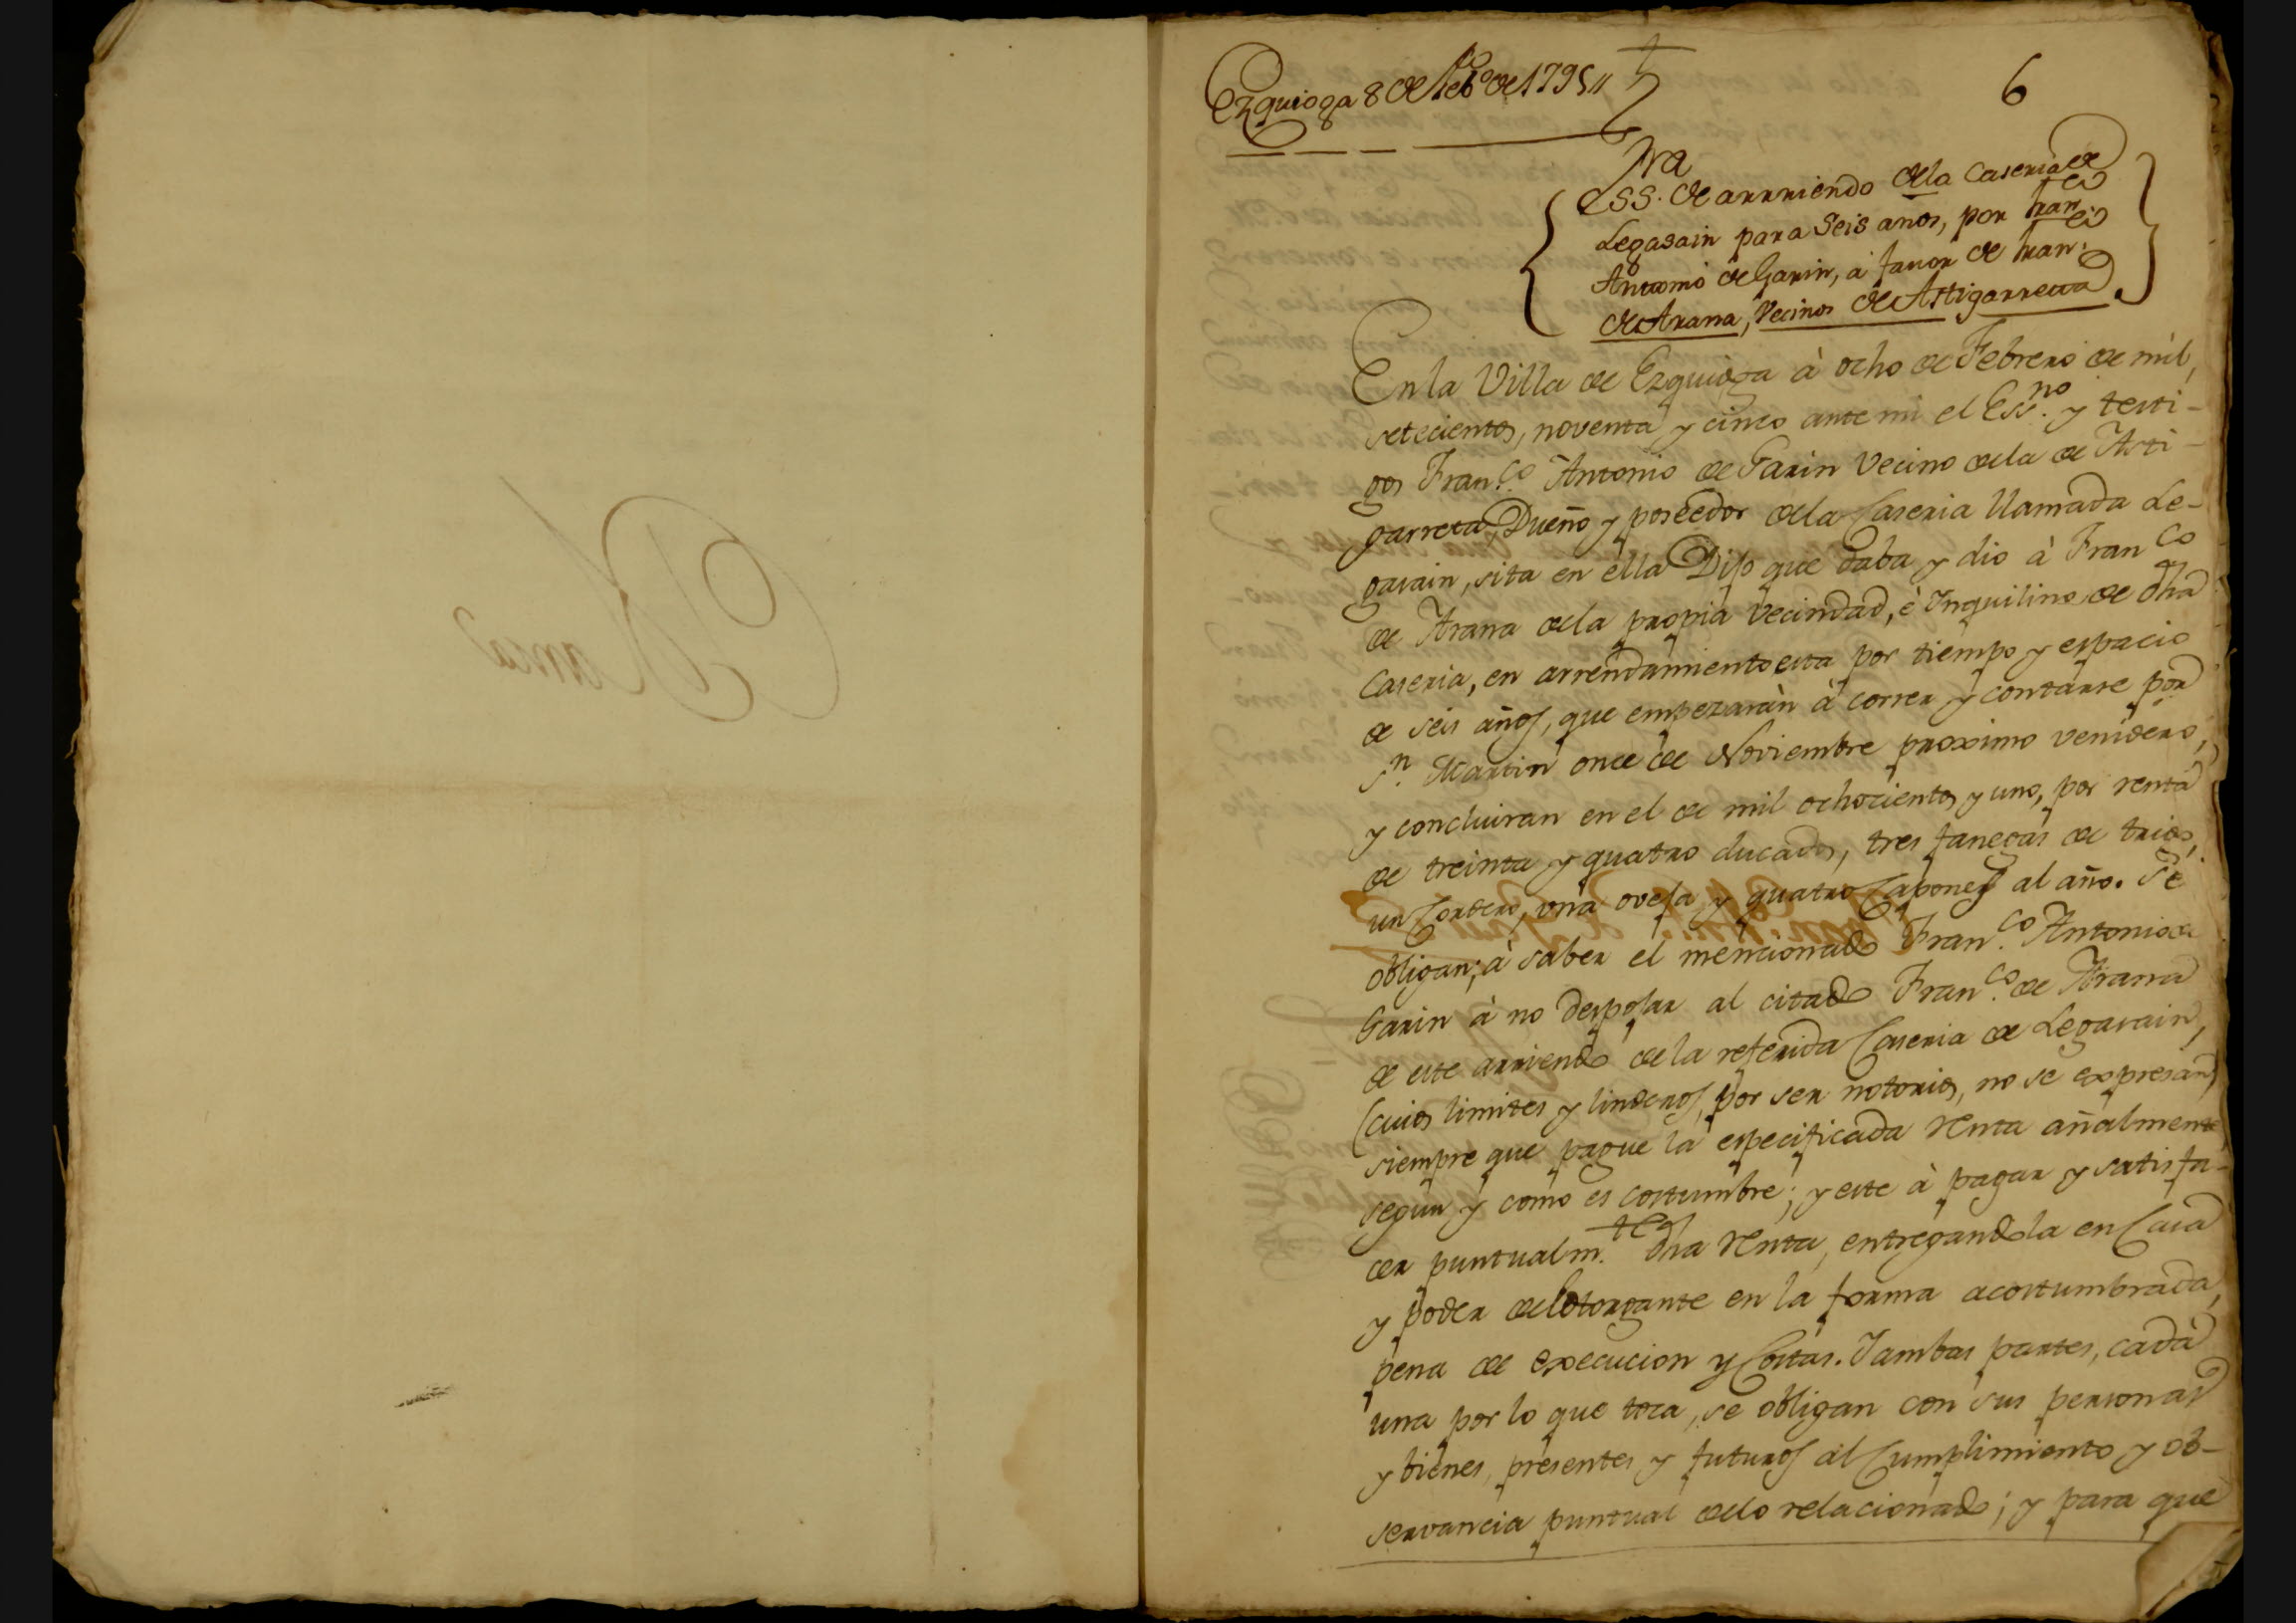 Ezquioga 8 de Feb.º de 1795
6
Ess.ra de arrriendo dela Caseria de
Legasain para Seis años, por Fran.co
Antonio de Garin, à favor de Fran.co
de Arana, Vecinos de Astigarreta
En la Villa de Ezquioga à ocho de Febrero de mil,
setecientos, noventa y cinco ante mi el Ess.no y testi-
gos Fran.co Antonio de Garin Vecino dela de Asti-
garreta, Dueño y poseedor dela Caseria llamada Le-
gasain, sita en ella Dijo que daba y dio à Fran.co
de Arana dela propia vecindad, è Inquilino de dha
Caseria, en arrendamiento esta por tiempo y espacio
de seis años, que empezaràn à correr y contarse por
S.n Martin once de Noviembre proximo venidero,
y concluiran en el de mil ochocientos y uno, por renta
de treinta y quatro ducados, tres fanegas de trigo,
un Cordero, una oveja y quatro Capones al año. Se
obligan; à saber el mencionado Fran.co Antonio de
Garin à no despojar al citado Fran.co de Arana
de este arriendo de la referida Caseria de Legasain,
(cuios limites y linderos, por ser notorios, no se expresan)
siempre que pague la especificada renta añalmente
segun y como es costumbre; y este à pagar y satisfa-
cer puntualm.te dha renta, entregandola en Casa
y poder del otorgante en la forma acostumbrada,
pena de execucion y Costas. Y ambas partes, cada
una por lo que toca, se obligan con sus personas
y bienes, presentes y futuros al Cumplimiento y ob-
servancia puntual delo relacionado; y para que